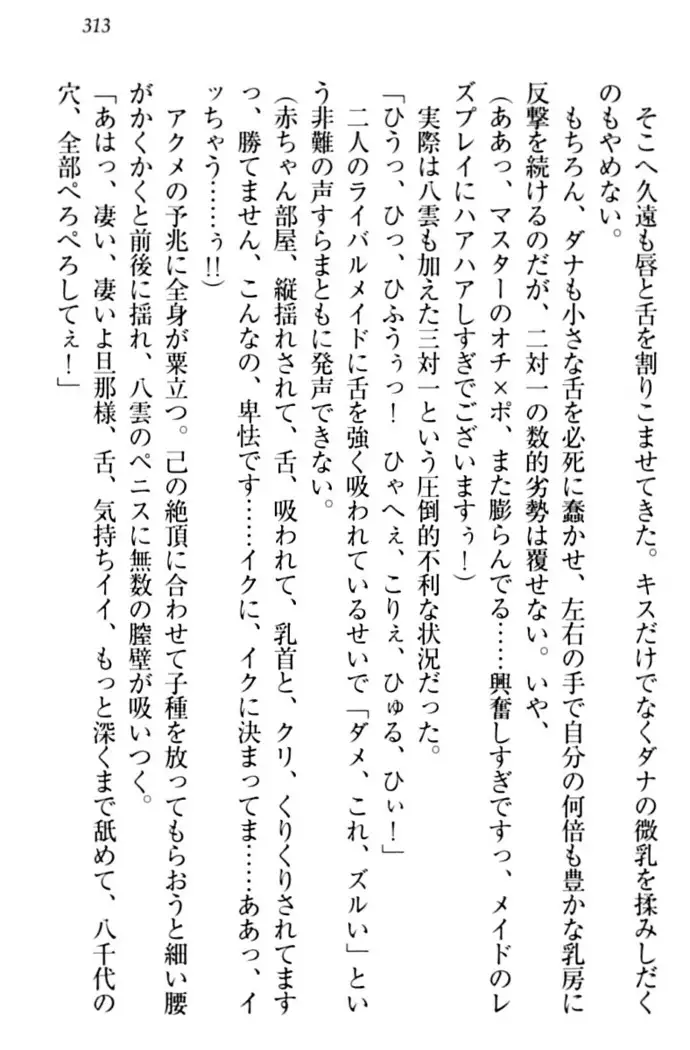 313
そこへ久遠も唇と舌を割りこませてきた。キスだけでなくダナの微乳を揉みしだく
のもやめない。
もちろん、ダナも小さな舌を必死に蠢かせ、左右の手で自分の何倍も豊かな乳房に
反撃を続けるのだが、二対一の数的劣勢は覆せない。いや、
(ああっ、マスターのオチ×ポ、また膨らんでる……興奮しすぎですっ、メイドのレ
ズプレイにハアハアしすぎでございますぅ!)
実際は八雲も加えた三対一という圧倒的不利な状況だった。
「ひうっ、ひっ、ひふうぅっ! ひゃへぇ、こりぇ、ひゅる、ひぃ!」
二人のライバルメイドに舌を強く吸われているせいで「ダメ、これ、ズルい」とい
う非難の声すらまともに発声できない。
(赤ちゃん部屋、縦揺れされて、舌、吸われて、乳首と、クリ、くりくりされてます
っ、勝てません、こんなの、卑怯です……イクに、イクに決まってま……ああっ、イ
ッちゃう……ぅ!!)
アクメの予兆に全身が粟立つ。己の絶頂に合わせて子種を放ってもらおうと細い腰
がかくかくと前後に揺れ、八雲のペニスに無数の膣壁が吸いつく。
「あはっ、凄い、凄いよ旦那様、舌、気持ちイイ、もっと深くまで舐めて、八千代の
穴、全部ぺろぺろしてぇ!」